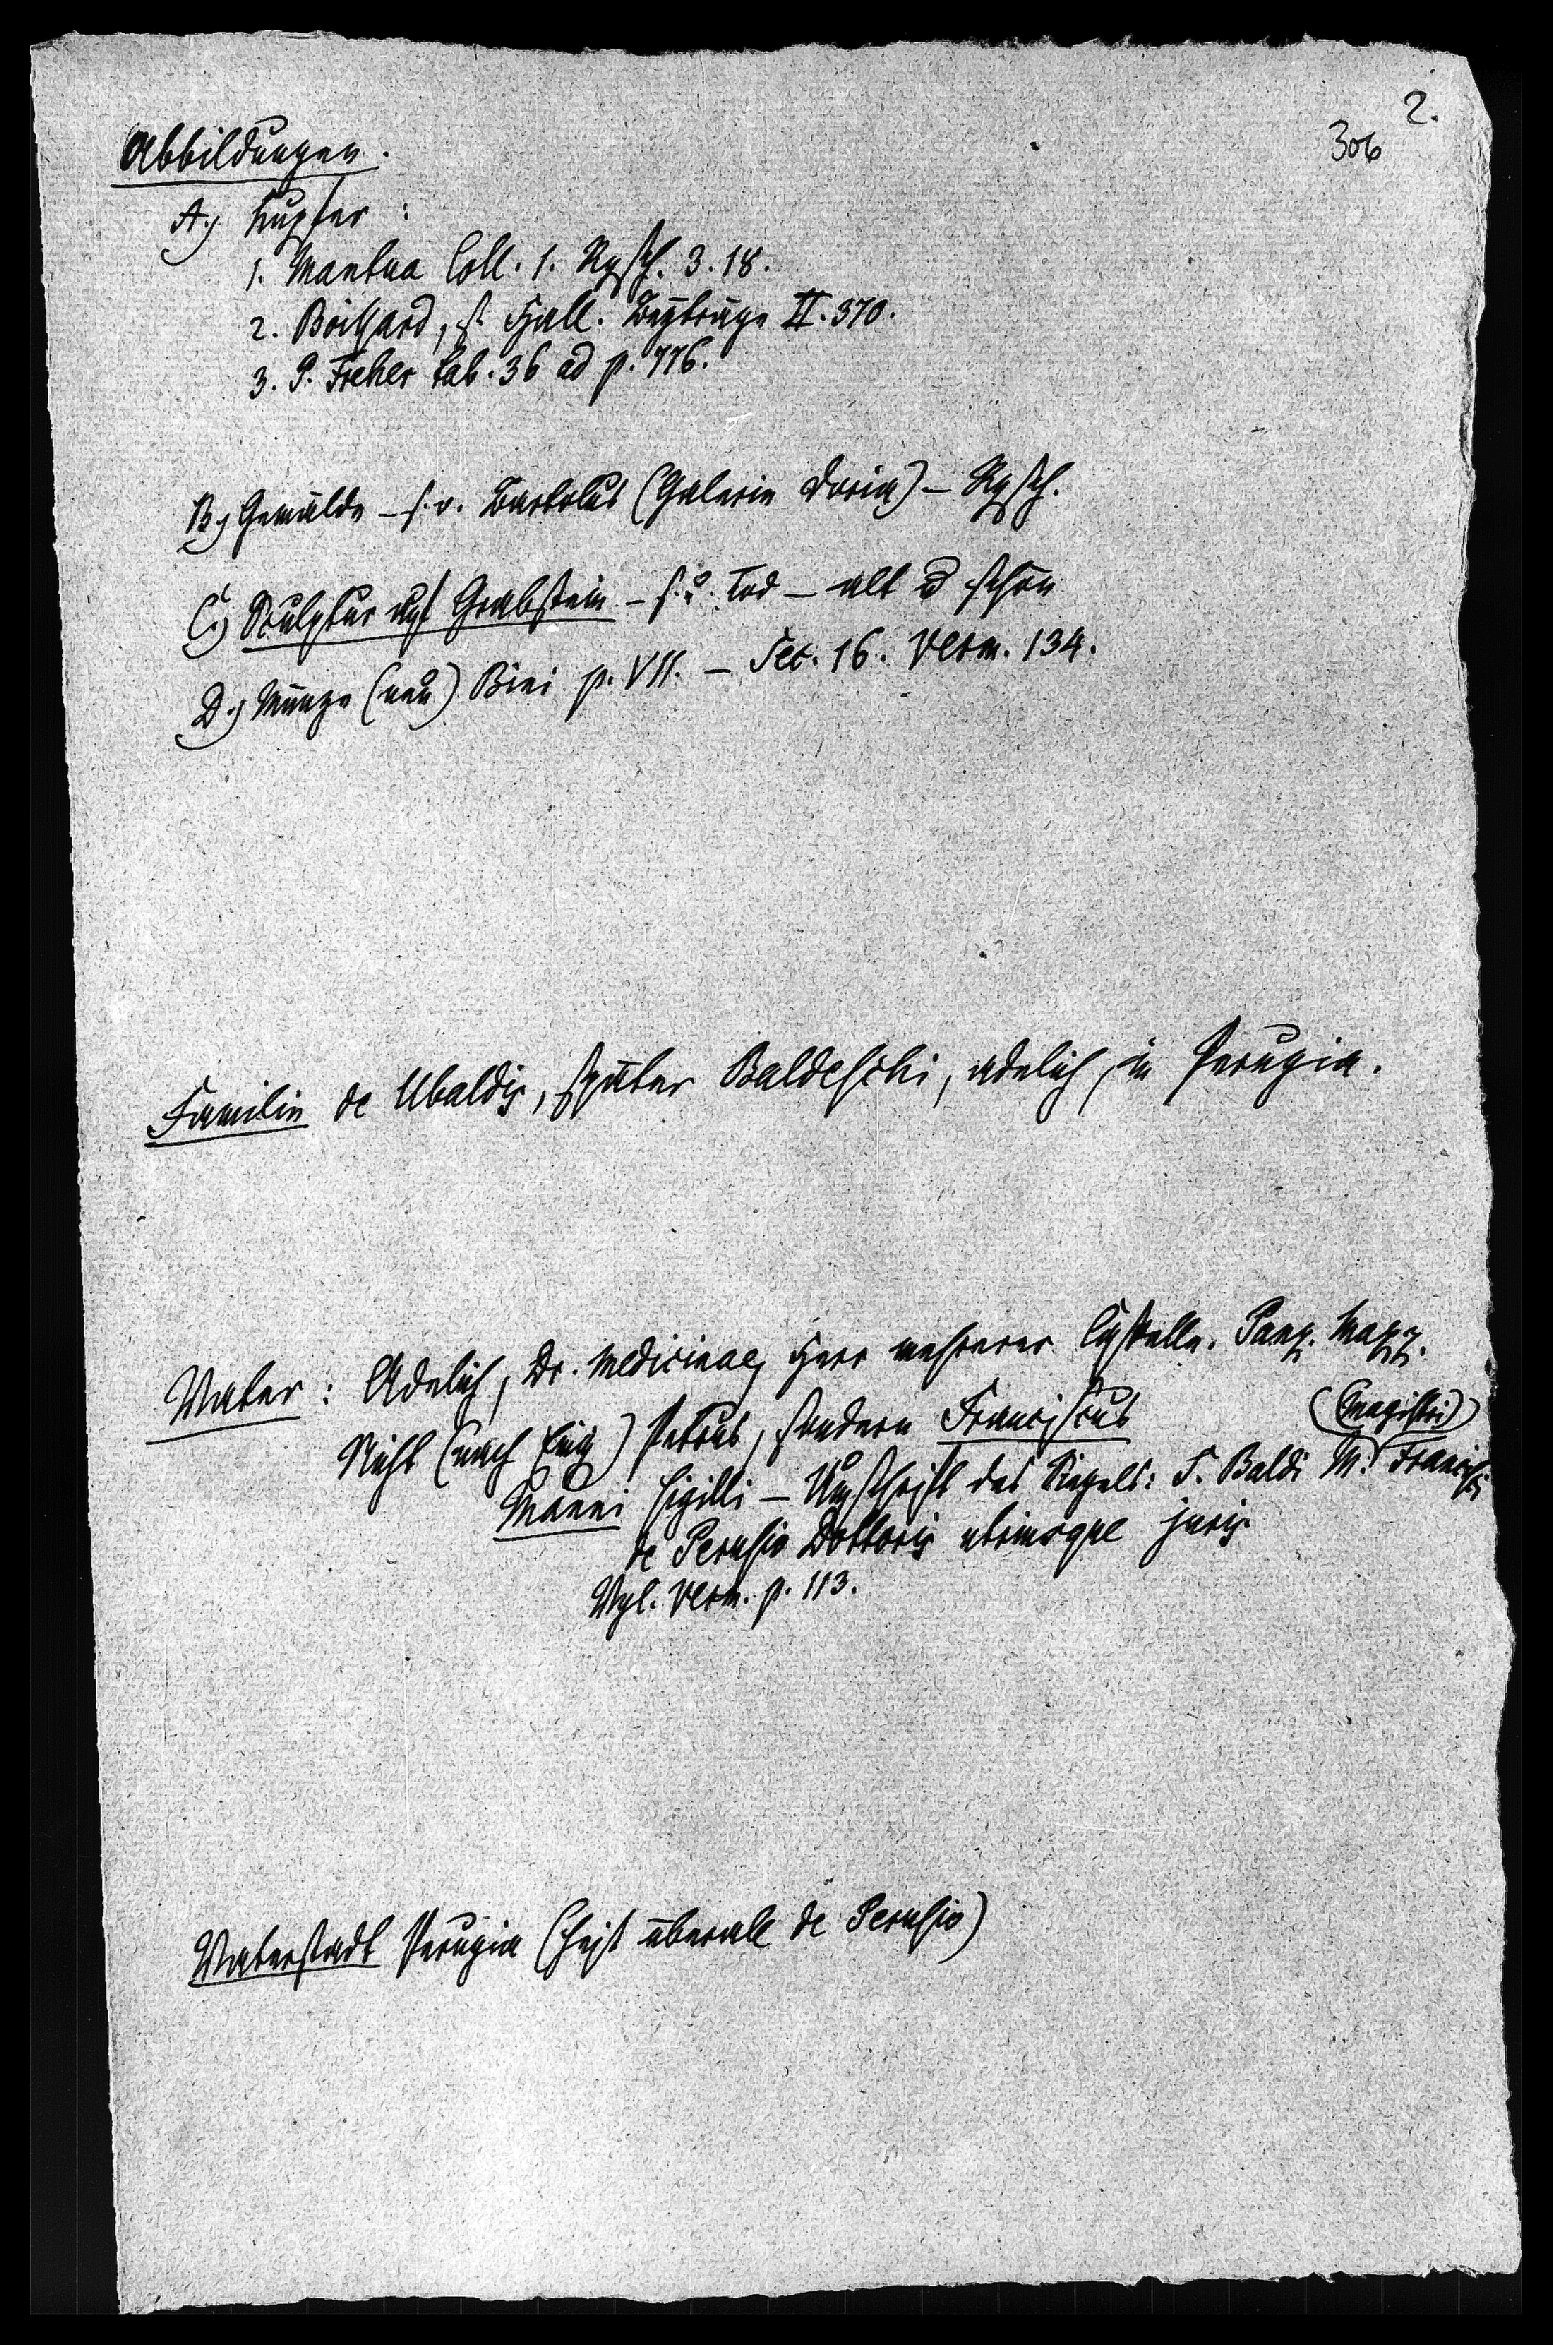 2.
306
Abbildungen.
A.) Kupfer:
1. Mantua Coll. 1. Rgsch. 3. 18.
2. Boissard, s. Hall. Beyträge II. 370.
3. P. Freher tab. 36 ad p. 776.
B.) Gemälde – s. v. Bartolus (Galerie Doria) – Rgsch.
C.) Sculptur auf Grabstein – s. u. Tod – alt u schön
D.) Münze (neu) Bini p. VII. – Sec. 16. Verm. 134.
Familie de Ubaldis, später Baldeschi, adelich, in Perugia.
Vater: Adelich, Dr. Medicinae, Herr mehrerer Castelle. Panz. Mazz.
Nicht (nach) Petrus, sondern Franciscus
(magistri)
Manni sigilli – Umschrift des Siegels: S. Baldi M. Francisci
de Perusio Doctoris utriusque juris
Vgl. Verm. p. 113.
Vaterstadt Perugia (heist überall de Perusio)